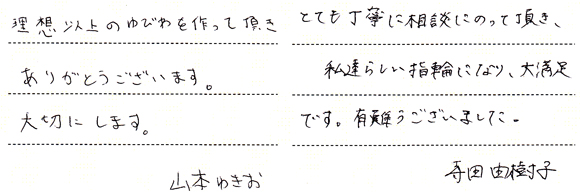 理想以上のゆびわを作って頂き
ありがとうございます。
大切にします。
山本ゆきお
とても丁寧に相談にのって頂き、
私達らしい指輪になり、大満足
です。有難うございました。
寺田由樹子